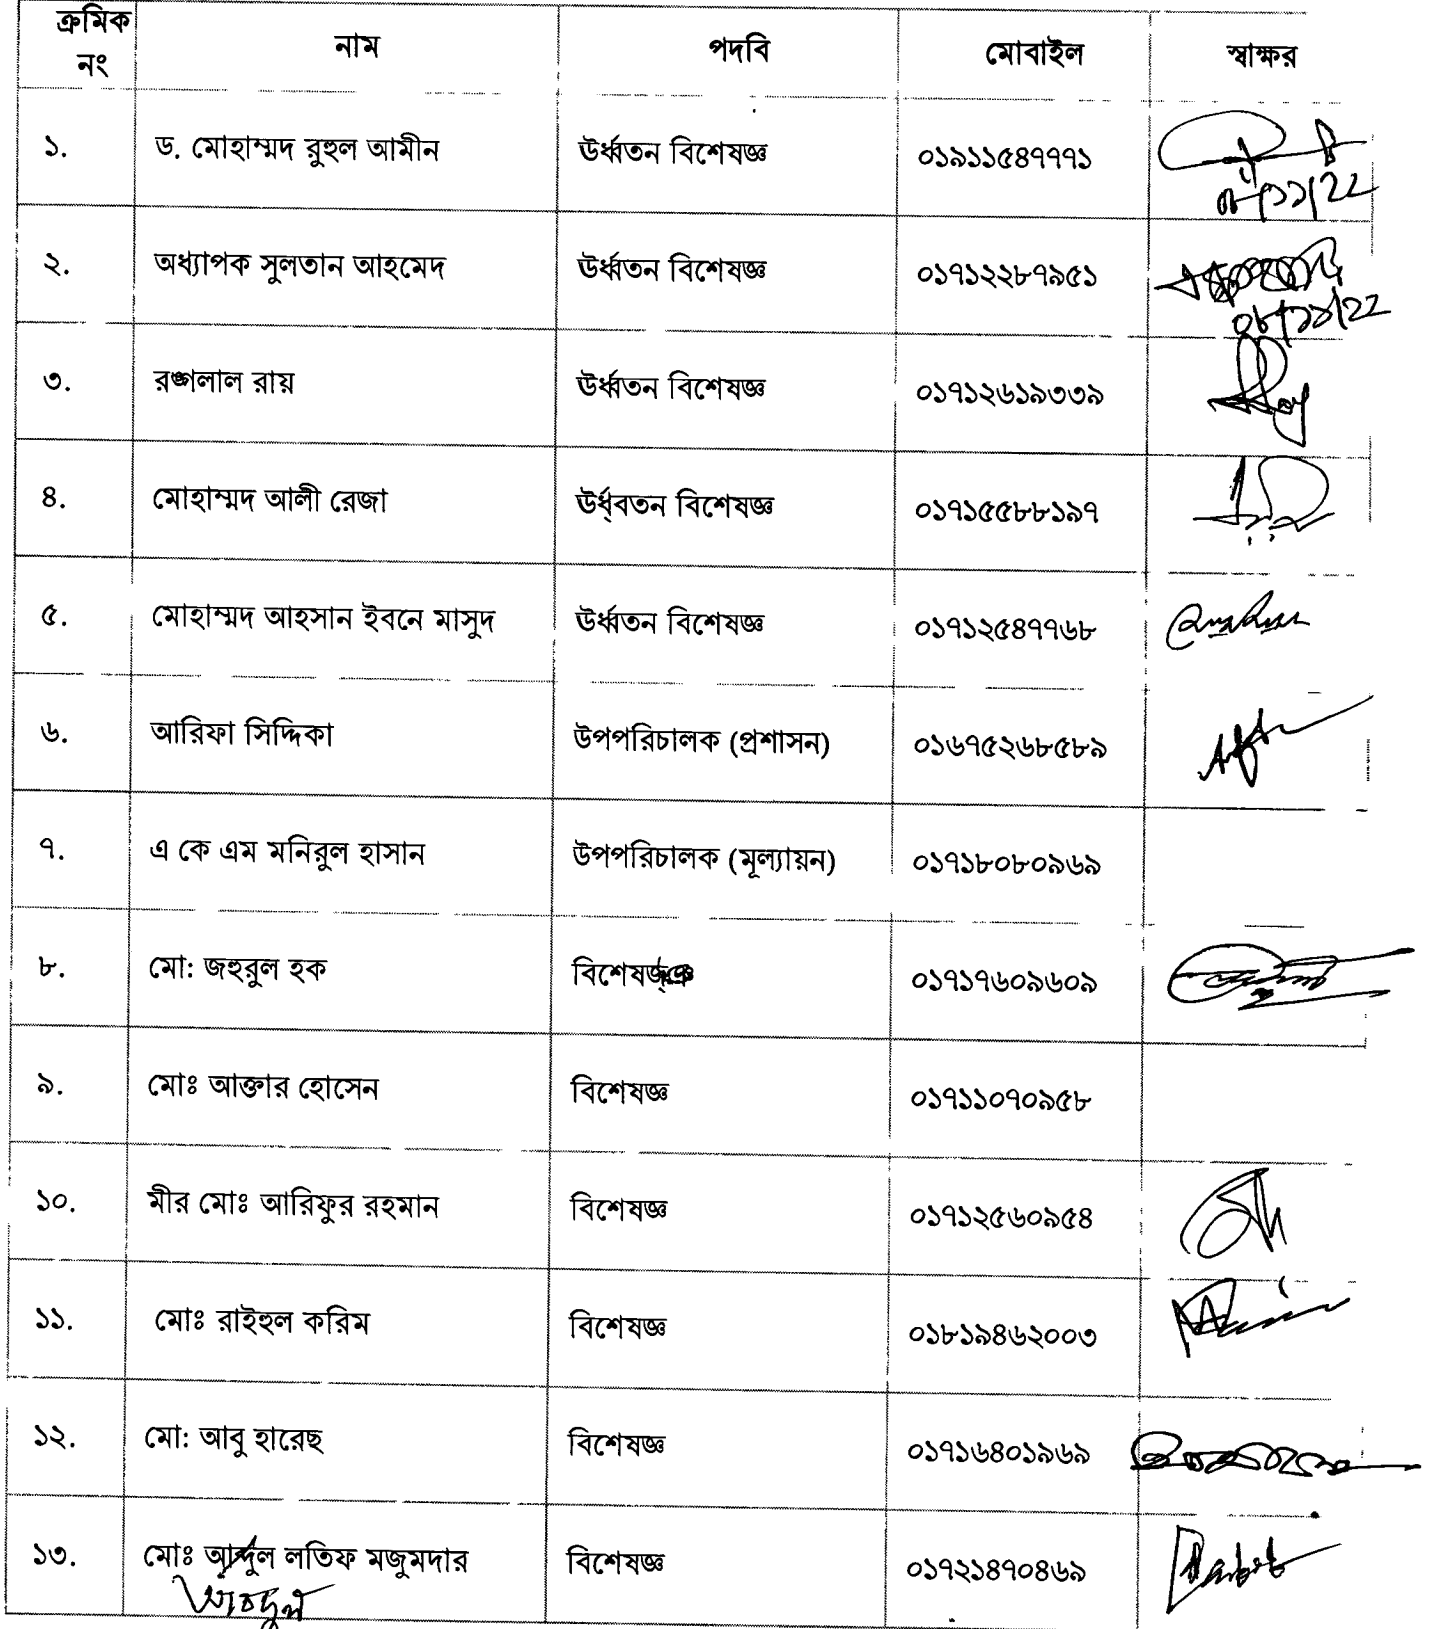 ক্রমিক নং নাম পদবি মোবাইল স্বাক্ষর
১. ড. মোহাম্মদ রুহুল আমীন ঊর্ধ্বতন বিশেষজ্ঞ ০১৯১১৫৪৭৭৭১
০৮/১১/২২
২. অধ্যাপক সুলতান আহমেদ ঊর্ধ্বতন বিশেষজ্ঞ ০১৭১২২৮৭৯৫১
০৮/১১/২২
৩. রঙ্গলাল রায় ঊর্ধ্বতন বিশেষজ্ঞ ০১৭১২৬১৯৩৩৯
৪. মোহাম্মদ আলী রেজা ঊর্ধ্বতন বিশেষজ্ঞ ০১৭১৫৫৮৮১৯৭
৫. মোহাম্মদ আহসান ইবনে মাসুদ ঊর্ধ্বতন বিশেষজ্ঞ ০১৭১২৫৪৭৭৬৮
৬. আরিফা সিদ্দিকা উপপরিচালক (প্রশাসন) ০১৬৭৫২৬৮৫৮৯
৭. এ কে এম মনিরুল হাসান উপপরিচালক (মূল্যায়ন) ০১৭১৮০৮০৯৬৯
৮. মো: জহুরুল হক বিশেষজ্ঞ ০১৭১৭৬০৯৬০৯
৯. মোঃ আক্তার হোসেন বিশেষজ্ঞ ০১৭১১০৭০৯৫৮
১০. মীর মোঃ আরিফুর রহমান বিশেষজ্ঞ ০১৭১২৫৬০৯৫৪
১১. মোঃ রাইহুল করিম বিশেষজ্ঞ ০১৮১৯৪৬২০০৩
১২. মো: আবু হারেছ বিশেষজ্ঞ ০১৭১৬৪০১৯৬৯
১৩. মোঃ আব্দুল লতিফ মজুমদার বিশেষজ্ঞ ০১৭২১৪৭০৪৬৯
আবদুল